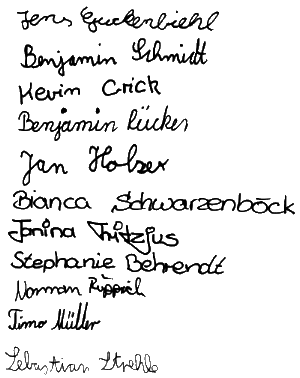 Jens Guckenbiehl
Benjamin Schmidt
Kevin Crick
Benjamin Rücker
Jan Holzer
Bianca Schwarzenböck
Janina Fritzjus
Stephanie Behrendt
Norman Rüppich
Timo Müller
Sebastian Strehle